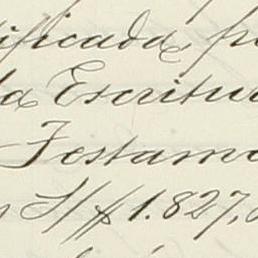 ificada, po
la Escritu
Testame
S/$ 1.827,